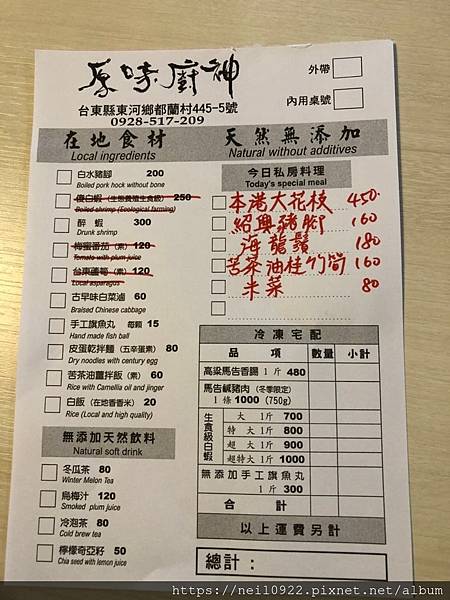 原味廚神
外帶
內用桌號
台東縣東河鄉都蘭村445-5號
0928-517-209
在地食材
Local ingredients
白水豬腳 200
Boiled pork hock without bone
傻白蝦 (生態養殖生食級) 250
Boiled shrimp (Ecological farming)
醉 蝦 300
Drunk shrimp
梅蜜番茄 (素) 120
Tomato with plum juice
台東蘆筍 (素) 120
Local asparagus
古早味白菜滷 60
Braised Chinese cabbage
手工旗魚丸 每顆 15
Hand made fish ball
皮蛋乾拌麵 (五辛蛋素) 80
Dry noodles with century egg
苦茶油薑拌飯 (素) 60
Rice with Camellia oil and jinger
白飯 (在地香香米) 20
Rice (Local and high quality)
無添加天然飲料
Natural soft drink
冬瓜茶 80
Winter Melon Tea
烏梅汁 120
Smoked plum juice
冷泡茶 80
Cold brew tea
檸檬奇亞籽 50
Chia seed with lemon juice
天然無添加
Natural without additives
今日私房料理
Today's special meal
本港大花枝 450
紹興豬腳 160
海龍鬚 180
苦茶油桂竹筍 160
米菜 80
冷凍宅配
品 項 數量 小計
高粱馬告香腸 1斤 480
馬告鹹豬肉 (冬季限定)
1條 1000 (750g)
生食級白蝦
大 1斤 700
特 大 1斤 800
超 大 1斤 900
超特大 1斤 1000
無添加手工旗魚丸
1斤 300
合 計
以上運費另計
總計：
https://neil0922.pixnet.net/album